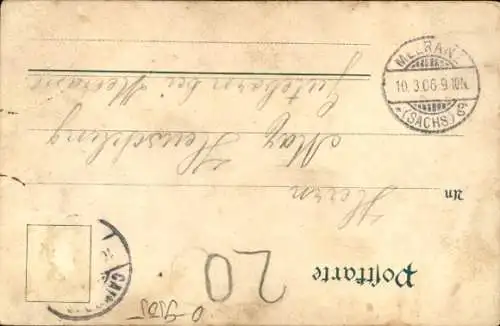 Postkarte
An
Herrn
Max Henschling
Gutsbes bei Meerane
MEERANE
10. 3. 06. 9-10N.
(SACHS) gg
20